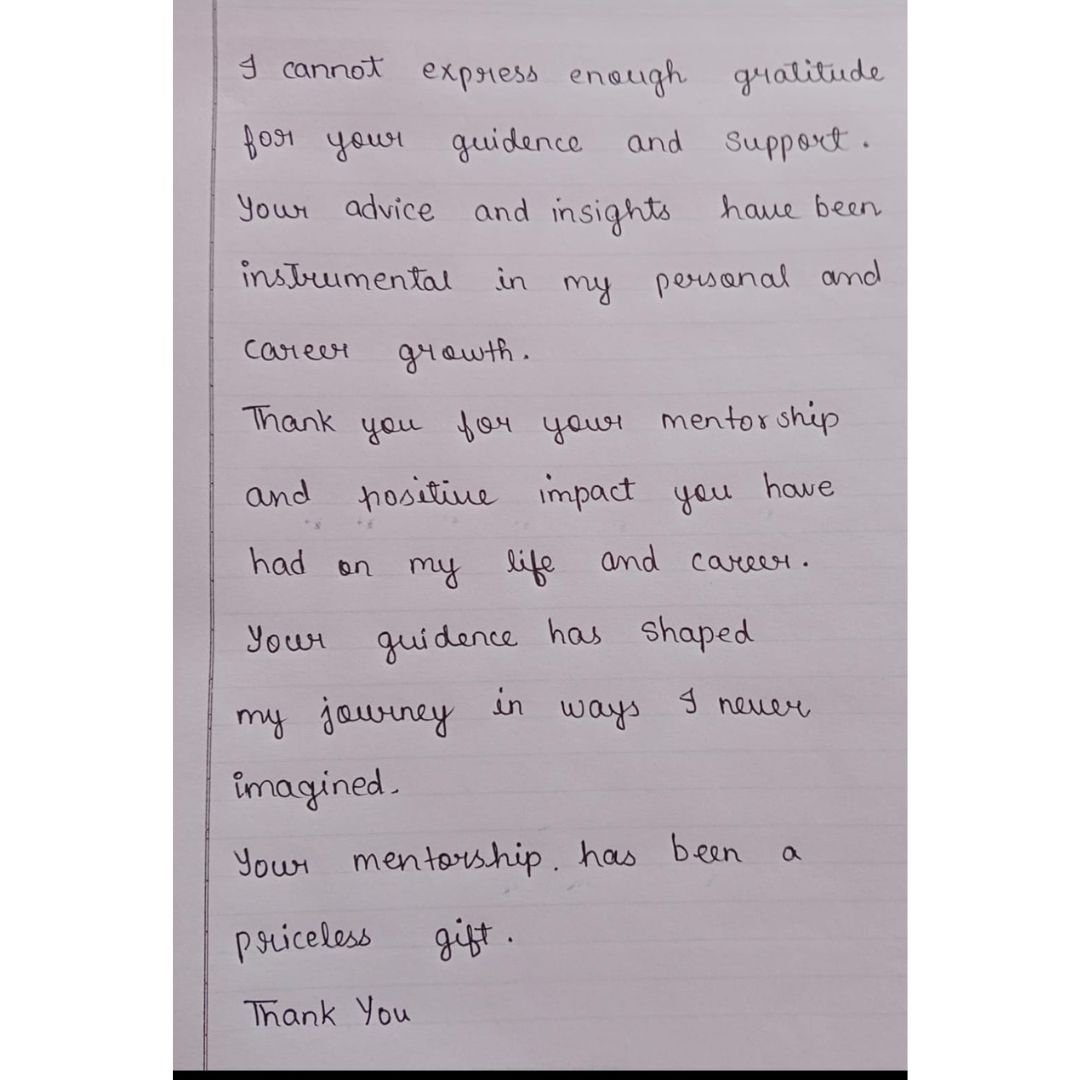 I cannot express enough gratitude
for your guidence and support.
Your advice and insights have been
instrumental in my personal and
career growth.
Thank you for your mentorship
and positive impact you have
had on my life and career.
Your guidence has shaped
my journey in ways I never
imagined.
Your mentorship. has been a
priceless gift.
Thank You